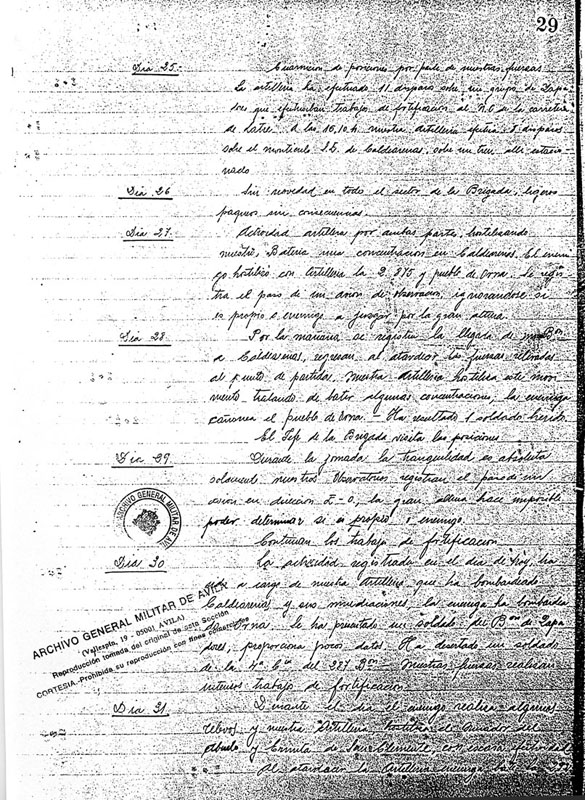 29
Día 25.- Guarnicion de posiciones por parte de nuestras fuerzas
La artilleria ha efectuado 11 disparos sobre un grupo de Zapa
dores que efectuaban trabajos de fortificacion al N.O de la carretera
de Latre. A las 16,10 h. nuestra artilleria efectua 5 disparos
sobre el monticulo S.E. de Caldearenas, sobre un tren alli estacio
nado
Dia 26 Sin novedad en todo el sector de la Brigada, ligeros
paqueos sin consecuencias.
Dia 27. Actividad artillera por ambas partes, hostilizando
nuestra Bateria una concentracion en Caldearenas. El enemi
go hostilizó con artilleria la 2.875 y pueblo de Orna. Se regis
tra el paso de un avion de observacion, ignorandose si
es propio o enemigo a juzgar por la gran altura.
Dia 28. Por la mañana se registra la llegada de Bon
a Caldearenas, regresan al atardecer las fuerzas relevadas
al punto de partida, nuestra artilleria hostiliza este movi
miento tratando de batir algunas concentraciones, la enemiga
cañonea el pueblo de Orna. - Ha resultado 1 soldado herido.
El Jefe de la Brigada visita las posiciones
Dia 29. Durante la jornada la tranquilidad es absoluta
solamente nuestros Observatorios registran el paso de un
avion en direccion E-O, la gran altura hace imposible
poder determinar si es propio o enemigo.
Continuan los trabajos de fortificacion
Dia 30 La actividad registrada en el dia de hoy, ha
a cargo de nuestra Artilleria que ha bombardeado
Caldearenas y sus inmediaciones, la enemiga ha bombardea
do Orna. Se ha presentado un soldado del Bon de Zapa
dores, proporciona pocos datos. Ha desertado un soldado
de la 4ª Cia del 327 Bon - Nuestras fuerzas realizan
intensos trabajos de fortificacion
Dia 31. Durante el dia el enemigo realiza algunos
relevos y nuestra Artilleria hostiliza el
Abuelo y Ermita de San Clemente, con escasa efectividad
Al atardecer la Artilleria enemiga
ARCHIVO GENERAL MILITAR DE AVILA
ARCHIVO GENERAL MILITAR DE AVILA
(Vallespin, 19 - 05001 AVILA)
Reproducción tomada del original de esta Sección
CORTESIA - Prohibida su reproducción con fines comerciales